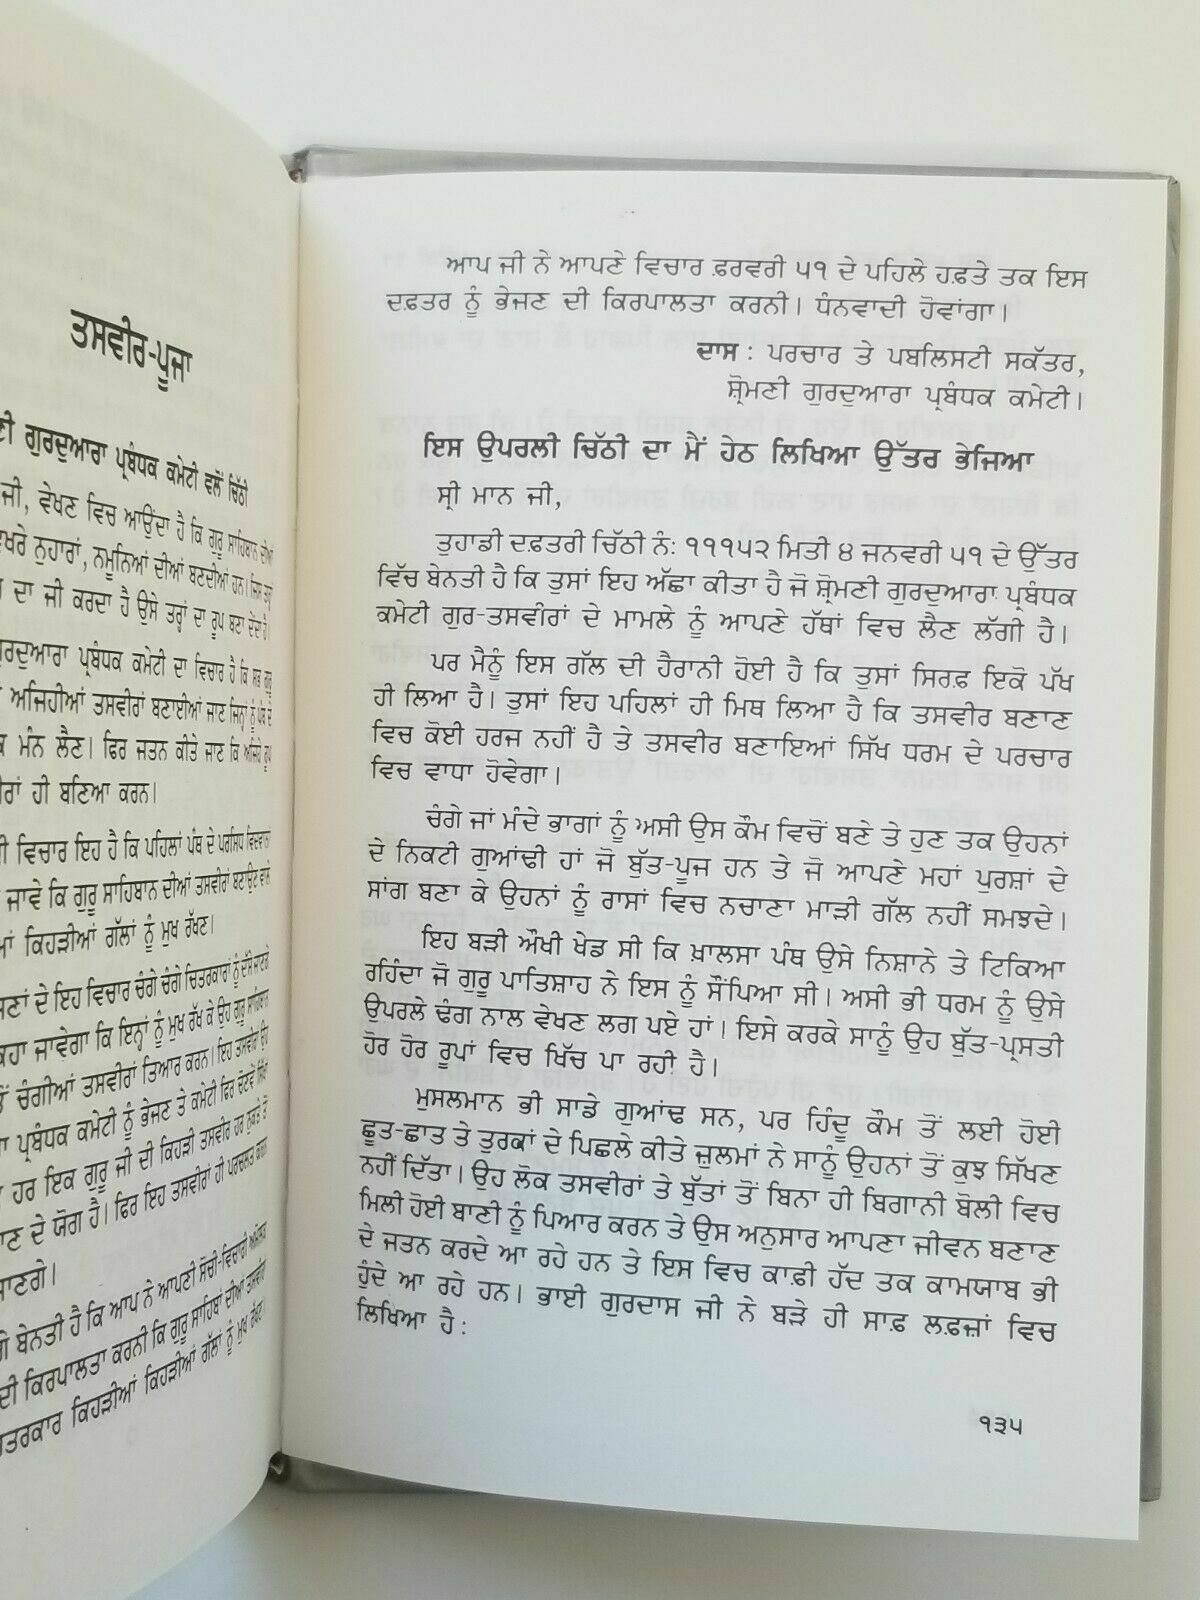 ਤਸਵੀਰ-ਪੂਜਾ
ਗੁਰਦੁਆਰਾ ਪ੍ਰਬੰਧਕ ਕਮੇਟੀ ਵਲੋਂ ਚਿੱਠੀ
ਜੀ, ਵੇਖਣ ਵਿਚ ਆਉਂਦਾ ਹੈ ਕਿ ਗੁਰੂ ਸਾਹਿਬਾਨ ਦੀਆਂ
ਨੁਹਾਰਾਂ, ਨਮੂਨਿਆਂ ਦੀਆਂ ਬਣਦੀਆਂ ਹਨ। ਜਿਸ ਤਰ੍ਹਾਂ
ਦਾ ਜੀ ਕਰਦਾ ਹੈ ਉਸੇ ਤਰ੍ਹਾਂ ਦਾ ਰੂਪ ਬਣਾ ਦੇਂਦਾ ਹੈ।
ਪ੍ਰਬੰਧਕ ਕਮੇਟੀ ਦਾ ਵਿਚਾਰ ਹੈ ਕਿ ਸਭ ਗੁਰੂ
ਅਜਿਹੀਆਂ ਤਸਵੀਰਾਂ ਬਣਾਈਆਂ ਜਾਣ ਜਿਨ੍ਹਾਂ ਨੂੰ ਪੰਥ ਦੇ
ਮੰਨ ਲੈਣ। ਫਿਰ ਜਤਨ ਕੀਤੇ ਜਾਣ ਕਿ ਅਜਿਹੇ ਰੂਪ
ਹੀ ਬਣਿਆ ਕਰਨ।
ਵਿਚਾਰ ਇਹ ਹੈ ਕਿ ਪਹਿਲਾਂ ਪੰਥ ਦੇ ਪਰਸਿਧ ਵਿਦਵਾਨਾਂ
ਜਾਵੇ ਕਿ ਗੁਰੂ ਸਾਹਿਬਾਨ ਦੀਆਂ ਤਸਵੀਰਾਂ ਬਣਾਉਣ ਵਾਲੇ
ਕਿਹੜੀਆਂ ਗੱਲਾਂ ਨੂੰ ਮੁਖ ਰੱਖਣ।
ਦੇ ਇਹ ਵਿਚਾਰ ਚੰਗੇ ਚੰਗੇ ਚਿਤਰਕਾਰਾਂ ਨੂੰ ਦੱਸੇ ਜਾਣਗੇ
ਜਾਵੇਗਾ ਕਿ ਇਨ੍ਹਾਂ ਨੂੰ ਮੁਖ ਰੱਖ ਕੇ ਉਹ ਗੁਰੂ ਸਾਹਿਬਾਨ
ਚੰਗੀਆਂ ਤਸਵੀਰਾਂ ਤਿਆਰ ਕਰਨ। ਇਹ ਤਸਵੀਰਾਂ ਉਹ
ਪ੍ਰਬੰਧਕ ਕਮੇਟੀ ਨੂੰ ਭੇਜਣ ਤੇ ਕਮੇਟੀ ਫਿਰ ਚੋਣਵੇਂ ਸਿੱਖਾਂ
ਹਰ ਇਕ ਗੁਰੂ ਜੀ ਦੀ ਕਿਹੜੀ ਤਸਵੀਰ ਹਰ ਨੁਕਤੇ ਤੋਂ
ਦੇ ਯੋਗ ਹੈ। ਫਿਰ ਇਹ ਤਸਵੀਰਾਂ ਹੀ ਪਰਚਲਤ ਕਰਨ
ਬੇਨਤੀ ਹੈ ਕਿ ਆਪ ਨੇ ਆਪਣੀ ਸੋਚੀ-ਵਿਚਾਰੀ
ਦੀ ਕਿਰਪਾਲਤਾ ਕਰਨੀ ਕਿ ਗੁਰੂ ਸਾਹਿਬਾਂ ਦੀਆਂ ਤਸਵੀਰਾਂ
ਕਿਹੜੀਆਂ ਕਿਹੜੀਆਂ ਗੱਲਾਂ ਨੂੰ ਮੁਖ ਰੱਖਣ।
ਆਪ ਜੀ ਨੇ ਆਪਣੇ ਵਿਚਾਰ ਫ਼ਰਵਰੀ ੫੧ ਦੇ ਪਹਿਲੇ ਹਫ਼ਤੇ ਤਕ ਇਸ
ਦਫ਼ਤਰ ਨੂੰ ਭੇਜਣ ਦੀ ਕਿਰਪਾਲਤਾ ਕਰਨੀ। ਧੰਨਵਾਦੀ ਹੋਵਾਂਗਾ।
ਦਾਸ : ਪਰਚਾਰ ਤੇ ਪਬਲਿਸਟੀ ਸਕੱਤਰ,
ਸ਼੍ਰੋਮਣੀ ਗੁਰਦੁਆਰਾ ਪ੍ਰਬੰਧਕ ਕਮੇਟੀ।
ਇਸ ਉਪਰਲੀ ਚਿੱਠੀ ਦਾ ਮੈਂ ਹੇਠ ਲਿਖਿਆ ਉੱਤਰ ਭੇਜਿਆ
ਸ੍ਰੀ ਮਾਨ ਜੀ,
ਤੁਹਾਡੀ ਦਫ਼ਤਰੀ ਚਿੱਠੀ ਨੰ: ੧੧੧੫੨ ਮਿਤੀ ੪ ਜਨਵਰੀ ੫੧ ਦੇ ਉੱਤਰ
ਵਿੱਚ ਬੇਨਤੀ ਹੈ ਕਿ ਤੁਸਾਂ ਇਹ ਅੱਛਾ ਕੀਤਾ ਹੈ ਜੋ ਸ਼੍ਰੋਮਣੀ ਗੁਰਦੁਆਰਾ ਪ੍ਰਬੰਧਕ
ਕਮੇਟੀ ਗੁਰ-ਤਸਵੀਰਾਂ ਦੇ ਮਾਮਲੇ ਨੂੰ ਆਪਣੇ ਹੱਥਾਂ ਵਿਚ ਲੈਣ ਲੱਗੀ ਹੈ।
ਪਰ ਮੈਨੂੰ ਇਸ ਗੱਲ ਦੀ ਹੈਰਾਨੀ ਹੋਈ ਹੈ ਕਿ ਤੁਸਾਂ ਸਿਰਫ਼ ਇਕੋ ਪੱਖ
ਹੀ ਲਿਆ ਹੈ। ਤੁਸਾਂ ਇਹ ਪਹਿਲਾਂ ਹੀ ਮਿਥ ਲਿਆ ਹੈ ਕਿ ਤਸਵੀਰ ਬਣਾਣ
ਵਿਚ ਕੋਈ ਹਰਜ ਨਹੀਂ ਹੈ ਤੇ ਤਸਵੀਰ ਬਣਾਇਆਂ ਸਿੱਖ ਧਰਮ ਦੇ ਪਰਚਾਰ
ਵਿਚ ਵਾਧਾ ਹੋਵੇਗਾ।
ਚੰਗੇ ਜਾਂ ਮੰਦੇ ਭਾਗਾਂ ਨੂੰ ਅਸੀ ਉਸ ਕੌਮ ਵਿਚੋਂ ਬਣੇ ਤੇ ਹੁਣ ਤਕ ਉਹਨਾਂ
ਦੇ ਨਿਕਟੀ ਗੁਆਂਢੀ ਹਾਂ ਜੋ ਬੁੱਤ-ਪੂਜ ਹਨ ਤੇ ਜੋ ਆਪਣੇ ਮਹਾਂ ਪੁਰਸ਼ਾਂ ਦੇ
ਸਾਂਗ ਬਣਾ ਕੇ ਉਹਨਾਂ ਨੂੰ ਰਾਸਾਂ ਵਿਚ ਨਚਾਣਾ ਮਾੜੀ ਗੱਲ ਨਹੀਂ ਸਮਝਦੇ।
ਇਹ ਬੜੀ ਔਖੀ ਖੇਡ ਸੀ ਕਿ ਖ਼ਾਲਸਾ ਪੰਥ ਉਸੇ ਨਿਸ਼ਾਨੇ ਤੇ ਟਿਕਿਆ
ਰਹਿੰਦਾ ਜੋ ਗੁਰੂ ਪਾਤਿਸ਼ਾਹ ਨੇ ਇਸ ਨੂੰ ਸੌਂਪਿਆ ਸੀ। ਅਸੀ ਭੀ ਧਰਮ ਨੂੰ ਉਸੇ
ਉਪਰਲੇ ਢੰਗ ਨਾਲ ਵੇਖਣ ਲਗ ਪਏ ਹਾਂ। ਇਸੇ ਕਰਕੇ ਸਾਨੂੰ ਉਹ ਬੁੱਤ-ਪ੍ਰਸਤੀ
ਹੋਰ ਹੋਰ ਰੂਪਾਂ ਵਿਚ ਖਿੱਚ ਪਾ ਰਹੀ ਹੈ।
ਮੁਸਲਮਾਨ ਭੀ ਸਾਡੇ ਗੁਆਂਢ ਸਨ, ਪਰ ਹਿੰਦੂ ਕੌਮ ਤੋਂ ਲਈ ਹੋਈ
ਛੂਤ-ਛਾਤ ਤੇ ਤੁਰਕਾਂ ਦੇ ਪਿਛਲੇ ਕੀਤੇ ਜ਼ੁਲਮਾਂ ਨੇ ਸਾਨੂੰ ਉਹਨਾਂ ਤੋਂ ਕੁਝ ਸਿੱਖਣ
ਨਹੀਂ ਦਿੱਤਾ। ਉਹ ਲੋਕ ਤਸਵੀਰਾਂ ਤੇ ਬੁੱਤਾਂ ਤੋਂ ਬਿਨਾ ਹੀ ਬਿਗਾਨੀ ਬੋਲੀ ਵਿਚ
ਮਿਲੀ ਹੋਈ ਬਾਣੀ ਨੂੰ ਪਿਆਰ ਕਰਨ ਤੇ ਉਸ ਅਨੁਸਾਰ ਆਪਣਾ ਜੀਵਨ ਬਣਾਣ
ਦੇ ਜਤਨ ਕਰਦੇ ਆ ਰਹੇ ਹਨ ਤੇ ਇਸ ਵਿਚ ਕਾਫ਼ੀ ਹੱਦ ਤਕ ਕਾਮਯਾਬ ਭੀ
ਹੁੰਦੇ ਆ ਰਹੇ ਹਨ। ਭਾਈ ਗੁਰਦਾਸ ਜੀ ਨੇ ਬੜੇ ਹੀ ਸਾਫ਼ ਲਫ਼ਜ਼ਾਂ ਵਿਚ
ਲਿਖਿਆ ਹੈ :
੧੩੫